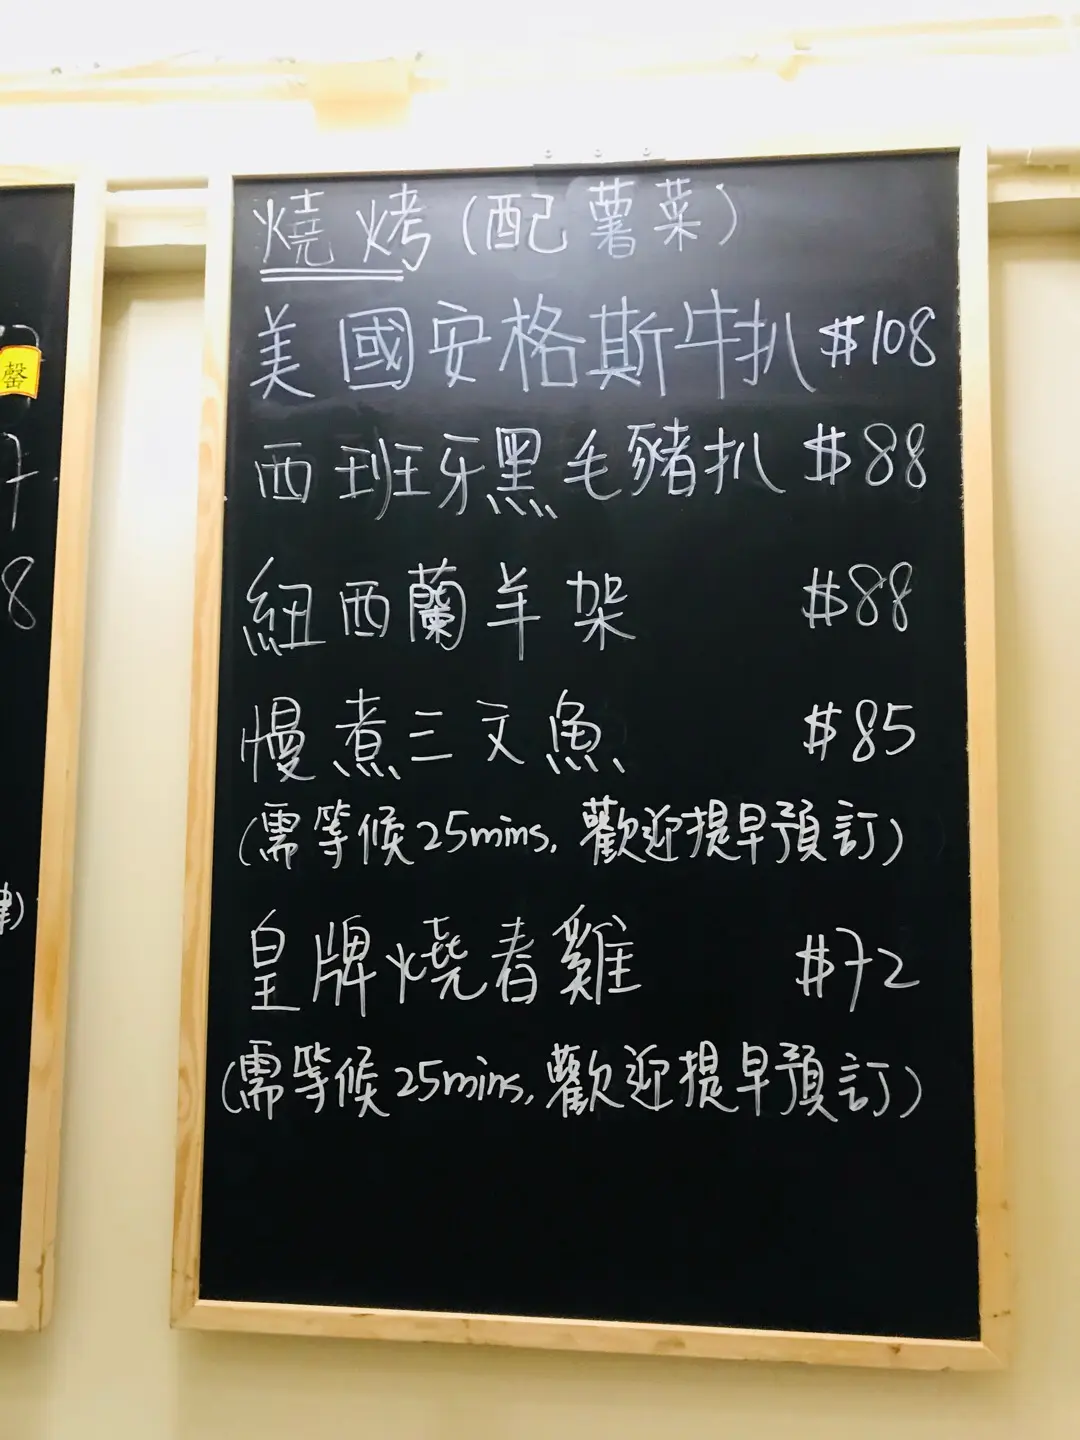 燒烤(配薯菜)
美國安格斯牛扒 $108
西班牙黑毛豬扒 $88
紐西蘭羊架 $88
慢煮三文魚 $85
(需等候25mins, 歡迎提早預訂)
皇牌燒春雞 $72
(需等候25mins, 歡迎提早預訂)
罄
7
8